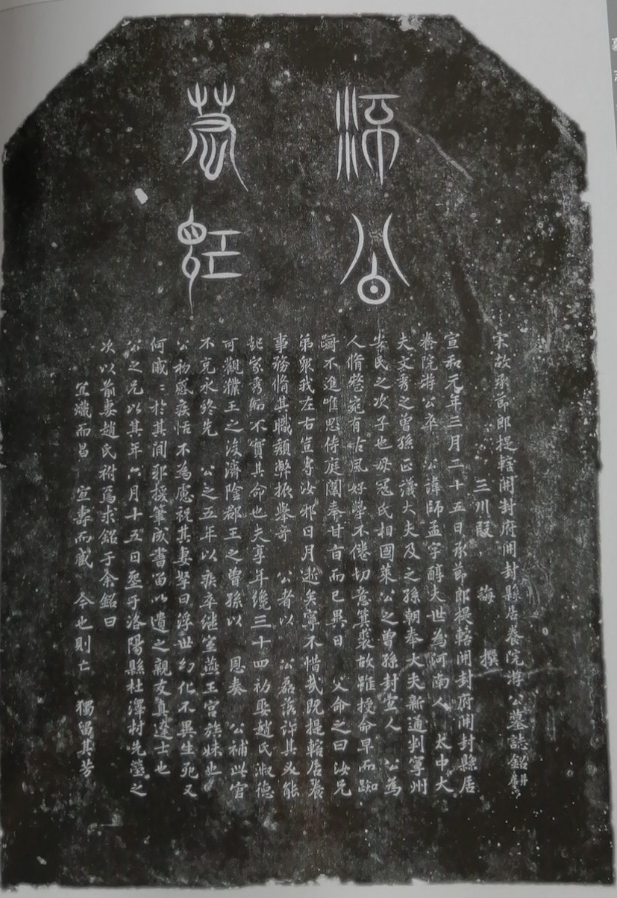 游公
墓誌
宋故承節郎提轄開封府開封縣居養院游公墓誌銘并
三川 誨 撰
宣和元年三月二十五日承節郎提轄開封府開封縣居
養院游公卒 公諱師孟字醇夫世為河南人 太中大
夫文彥之曾孫正議大夫及之孫朝奉大夫新通判寧州
安民之次子也母冠氏相國萊公之曾孫封 人 公為
人脩慤宛有古風好學不倦切意箕裘故雖授命早而踟
躕不進唯思侍庭闈奉甘旨而已異日 父命之曰汝兄
弟眾我左右宜專汝邪日月逝矣寧不惜哉既提轄居養
事務脩其職頹弊振舉 公者以 公磊落許其必能
起家秀 不實其命也夫享年纔三十四初娶趙氏淑德
可觀濮王之後濟陰郡王之曾孫以 恩奏 公補此官
不克永終先 公之五年以疾卒繼室燕王宮族妹也
公初感疾恬不為應視其妻孥曰浮世幻化不異生死又
何戚戚於其間邪援筆成書 以遺之親友真達士也
公之兄以其年六月十五日葬于洛陽縣杜澤村先塋之
次以前妻趙氏祔焉求銘于余銘曰
宜熾而昌 宜壽而臧 今也則亡 獨留其芳